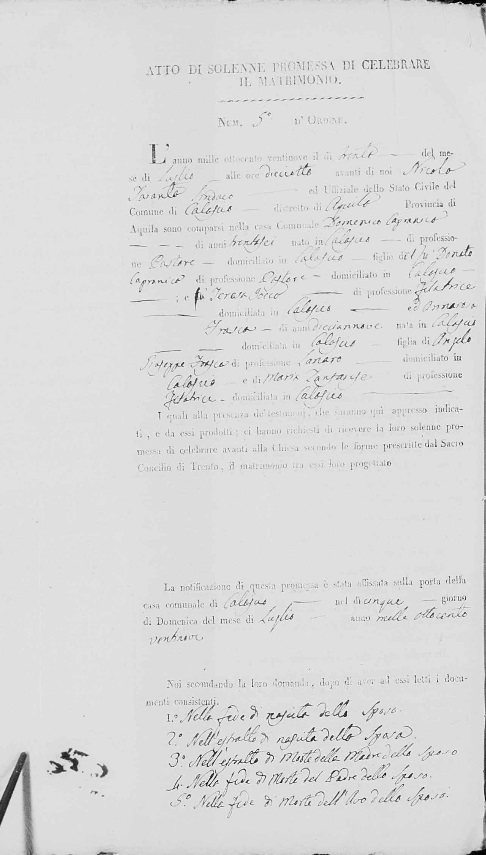 ATTO DI SOLENNE PROMESSA DI CELEBRARE
IL MATRIMONIO.
NUM. 5° D'ORDINE.
L'anno mille ottocento ventinove il di trenta del me-
se di Luglio alle ore dieciotto avanti di noi Nicola
Sindaco ed Uffiziale dello Stato Civile del
Comune di Calascio distretto di Aquila Provincia di
Aquila sono comparsi nella casa Comunale Domenico Capranico
di anni trentasei nato in Calascio di professio-
ne Pastore domiciliato in Calascio figlio del fu Donato
Capranico di professione Pastore domiciliato in Calascio
e fu Teresa di professione Filatrice
domiciliata in Calascio ed Annarosa
Frasca di anni dieciannove nata in Calascio
domiciliata in Calascio figlia di Angelo
Giuseppe Frasca di professione Lanaro domiciliato in
Calascio e di Maria di professione
Filatrice domiciliata in Calascio
I quali alla presenza de' testimonj, che saranno quì appresso indica-
ti, e da essi prodotti; ci hanno richiesti di ricevere la loro solenne pro-
messa di celebrare avanti alla Chiesa secondo le forme prescritte dal Sacro
Concilio di Trento, il matrimonio tra essi loro progettato
La notificazione di questa promessa è stata affissata sulla porta della
casa comunale di Calascio nel di cinque giorno
di Domenica del mese di Luglio anno mille ottocento
ventinove
Noi secondando la loro domanda, dopo di aver ad essi letti i docu-
menti consistenti
1.° Nella fede di nascita dello Sposo.
2.° Nell'estratto di nascita della Sposa.
3.° Nell'estratto di Morte della Madre dello Sposo
4. Nella fede di Morte del Padre dello Sposo.
5.° Nella fede di Morte dell'Avo dello Sposo.